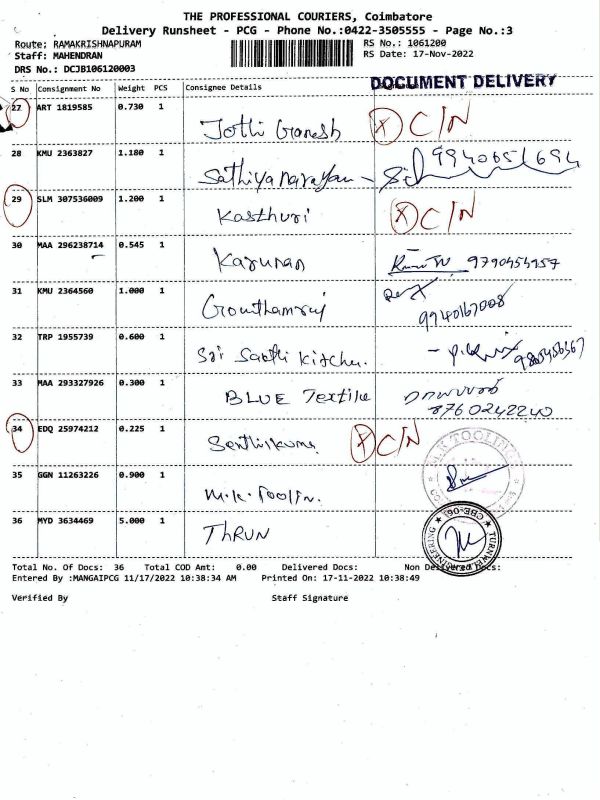 THE PROFESSIONAL COURIERS, Coimbatore
Delivery Runsheet - PCG - Phone No.:0422-3505555 - Page No.:3
Route: RAMAKRISHNAPURAM RS No.: 1061200
Staff: MAHENDRAN RS Date: 17-Nov-2022
DRS No.: DCJB106120003
S No Consignment No Weight PCS Consignee Details DOCUMENT DELIVERY
27 ART 1819585 0.730 1 Jothi Ganesh C/N
28 KMU 2363827 1.180 1 Sathiya narayan 9940651694
29 SLM 307536009 1.200 1 Kasthuri C/N
30 MAA 296238714 0.545 1 Karunan
31 KMU 2364560 1.000 1 Gowthamraj
32 TRP 1955739 0.600 1 Sri Sakthi Kitchen.
33 MAA 293327926 0.300 1 BLUE Textile 8760242240
34 EDQ 25974212 0.225 1 Senthilkumar C/N
35 GGN 11263226 0.900 1 M.K. Toolin.
36 MYD 3634469 5.000 1 THRUN
Total No. Of Docs: 36 Total COD Amt: 0.00 Delivered Docs: Non Delivered Docs:
Entered By :MANGAIPCG 11/17/2022 10:38:34 AM Printed On: 17-11-2022 10:38:49
Verified By Staff Signature